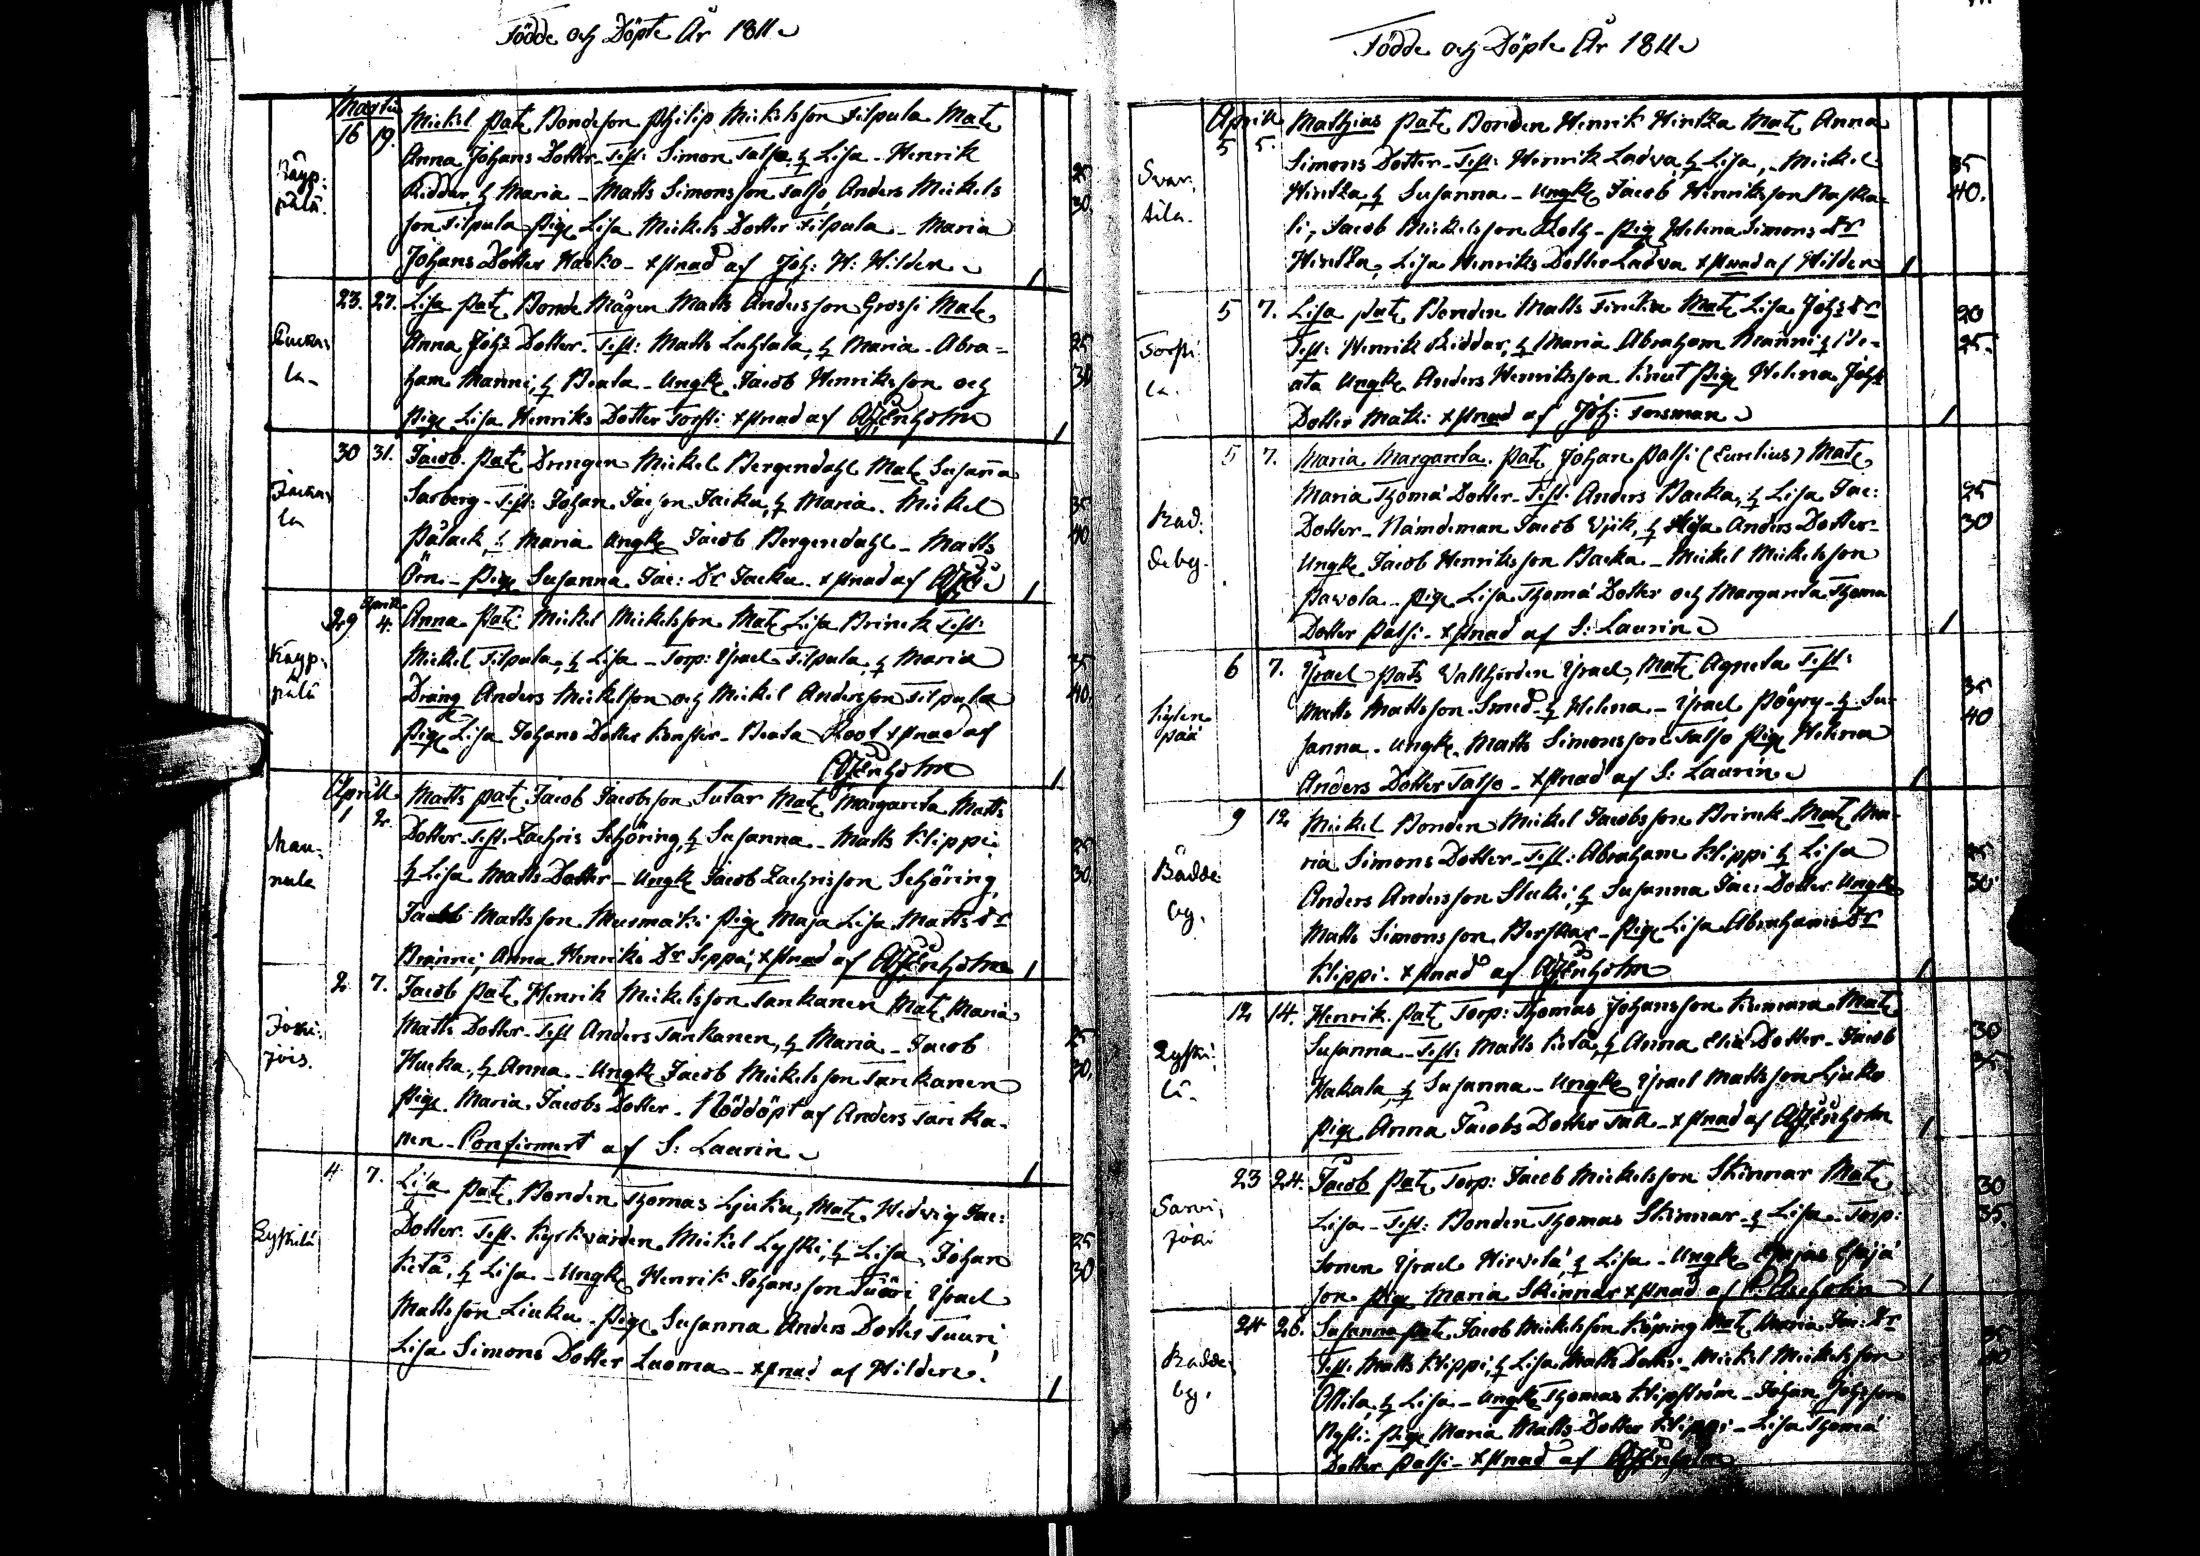 Födde och Döpte År 1811
Martii
16 19. Mickel Pat: Bondeson Philip Mickelsson Filpula Mat:
Anna Johans Dotter - Test: Simon Salso, & Lisa - Henrik
Käyp: Riddar, & Maria - Matts Simonsson Salso, Anders Mickels 25
pälä. son Filpula Pig: Lisa Mickels Dotter Filpula - Maria 30
Johans Dotter Harko - xstnad af Joh: H: Hilden 1
23. 27. Lisa Pat: Bonde Mågen Matts Andersson Grossi Mat:
Anna Johs Dotter. Test: Matts Lahtala, & Maria - Abra= 25
la - ham Manni, & Beata - Ungk: Jacob Henriksson och 30
Pig: Lisa Henriks Dotter Torsti xstnad af Asenholm 1
30 31. Jacob. Pat: Drengen Mickel Bergendahl Mat: Susanna
Sarberg - Test: Johan Jacku, & Maria. Mickel 35
la Pålack, & Maria Ungk: Jacob Bergendahl - Matts 40
Örn - Pig: Susanna Jac: Dr Jacku - xstnad af 1
29 Aprill 4. Anna Pat: Mickel Mickelsson Mat: Lisa Brinck Test:
Käyp: Mickel Filpula, & Lisa - Torp: Israel Filpula, & Maria 35
pälä Dräng Anders Mickelson och Mickel Andersson Filpula 40
Pig: Lisa Johans Dotter - Beata Root xstnad af
Asenholm 1
Aprill
1 2. Matts Pat: Jacob Jacobsson Sutar Mat: Margareta Matts
Dotter - Test: Zachris Schöring, & Susanna - Matts Klippi 25
Man: & Lisa Matts Dotter - Ungk: Jacob Zachrisson Schöring 30
nula Jacob Mattsson Murmäki Pig: Maja Lisa Matts Dr
Anna Henriks Dr Seppä, xstnad af Asenholm 1
2 7. Jacob Pat: Henrik Mickelsson Tankanen Mat: Maria
Matts Dotter - Test Anders Tankanen, & Maria - Jacob 25
jois. Hucka, & Anna - Ungk: Jacob Mickelsson Tankanen 30
Pig: Maria Jacobs Dotter - Nöddöpt af Anders Tanka-
nen - Confirmert af S: Laurin 1
4 7. Lisa Pat: Bonden Thomas Ljuku, Mat: Hedvig Jac:
Lyskilä Dotter. Test. Kyrkvärden Mickel Lyski, & Lisa - Johan 25
Ketä, & Lisa - Ungk: Henrik Johansson Tuori, Israel 30
Mattsson Liuku - Pig: Susanna Anders Dotter Tuuri,
Lisa Simons Dotter Luoma - xstnad af Hilden. 1
Födde och Döpte År 1811
Aprill
5 5. Mathias Pat: Bonden Henrik Hintza Mat: Anna
Svar, Simons Dotter - Test: Henrik Ladva, & Lisa, - Mickel 35
tila. Hintza, & Susanna - Ungk: Jacob Henriksson Raska- 40.
li, Jacob Mickelsson Pig: Helena Simons Dr
Hintza, Lisa Henriks Dotter Ladva xstnad af Hilden 1
5 7. Lisa Pat: Bonden Matts Mat: Lisa Johs Dr 20
Torsti Test: Henrik Riddar, & Maria Abraham Manni & Be- 25.
la. ata Ungk: Anders Henriksson Knut Pig: Helena Johs
Dotter Mäki xstnad af Joh: Forsman 1
5 7. Maria Margareta. Pat: Johan Palsi (Eurelius) Mat:
Maria Thoma Dotter - Test: Anders Backa, & Lisa Jac: 25
Rad: Dotter - Nämdeman Jacob & Anders Dotter - 30
deby. Ungk: Jacob Henriksson Backa - Mickel Mickelsson
Pavola - Pig: Lisa Thoma Dotter och Margareta Thoma
Dotter Palsi - xstnad af S: Laurin 1
6 7. Israel Pat: Vallhjorden Israel, Mat: Agneta Test: 35
Matts Mattsson Smed & Helena - Israel Pöyry - & Su- 40
pää sanna - Ungk: Matts Simonsson Salso Pig: Helena
Anders Dotter Salso - xstnad af S: Laurin 1
9 12 Mickel Bonden Mickel Jacobsson Brinck Mat: Ma-
Rådde ria Simons Dotter - Test: Abraham Klippi & Lisa 25
by. Anders Andersson & Susanna Jac: Dotter Ungk: 30
Matts Simonsson Pig: Lisa Abrahams Dr
Klippi - xstnad af Asenholm 1
12 14. Henrik. Pat: Torp: Thomas Johansson Mat: 30
Lyski: Susanna - Test: Matts Ketä, & Anna Elia Dotter - Jacob 35
lä - Hakala, & Susanna - Ungk: Israel Mattsson Ljuko
Pig: Anna Jacobs Dotter - xstnad af Asenholm 1
23 24. Jacob Pat: Torp: Jacob Mickelsson Skinnar Mat: 30
Sarvi, Lisa - Test: Bonden Thomas Skinnar & Lisa - Torp: 35.
joki sonen Israel Hirvelä, & Lisa - Ungk: Esajas Esaja
son Pig: Maria Skinnar xstnad af 1
24 26. Susanna Pat: Jacob Mickelsson Köping Mat: Maria Jac: Dr 35
Radde Test. Matts Klippi, & Lisa Matts Dotter - Mickel Mickelsson 40
by. & Lisa - Ungk: Thomas Klippström - Johan Johsson
Pig: Maria Matts Dotter Klippi - Lisa Thoma
Dotter Palsi - xstnad af Asenholm